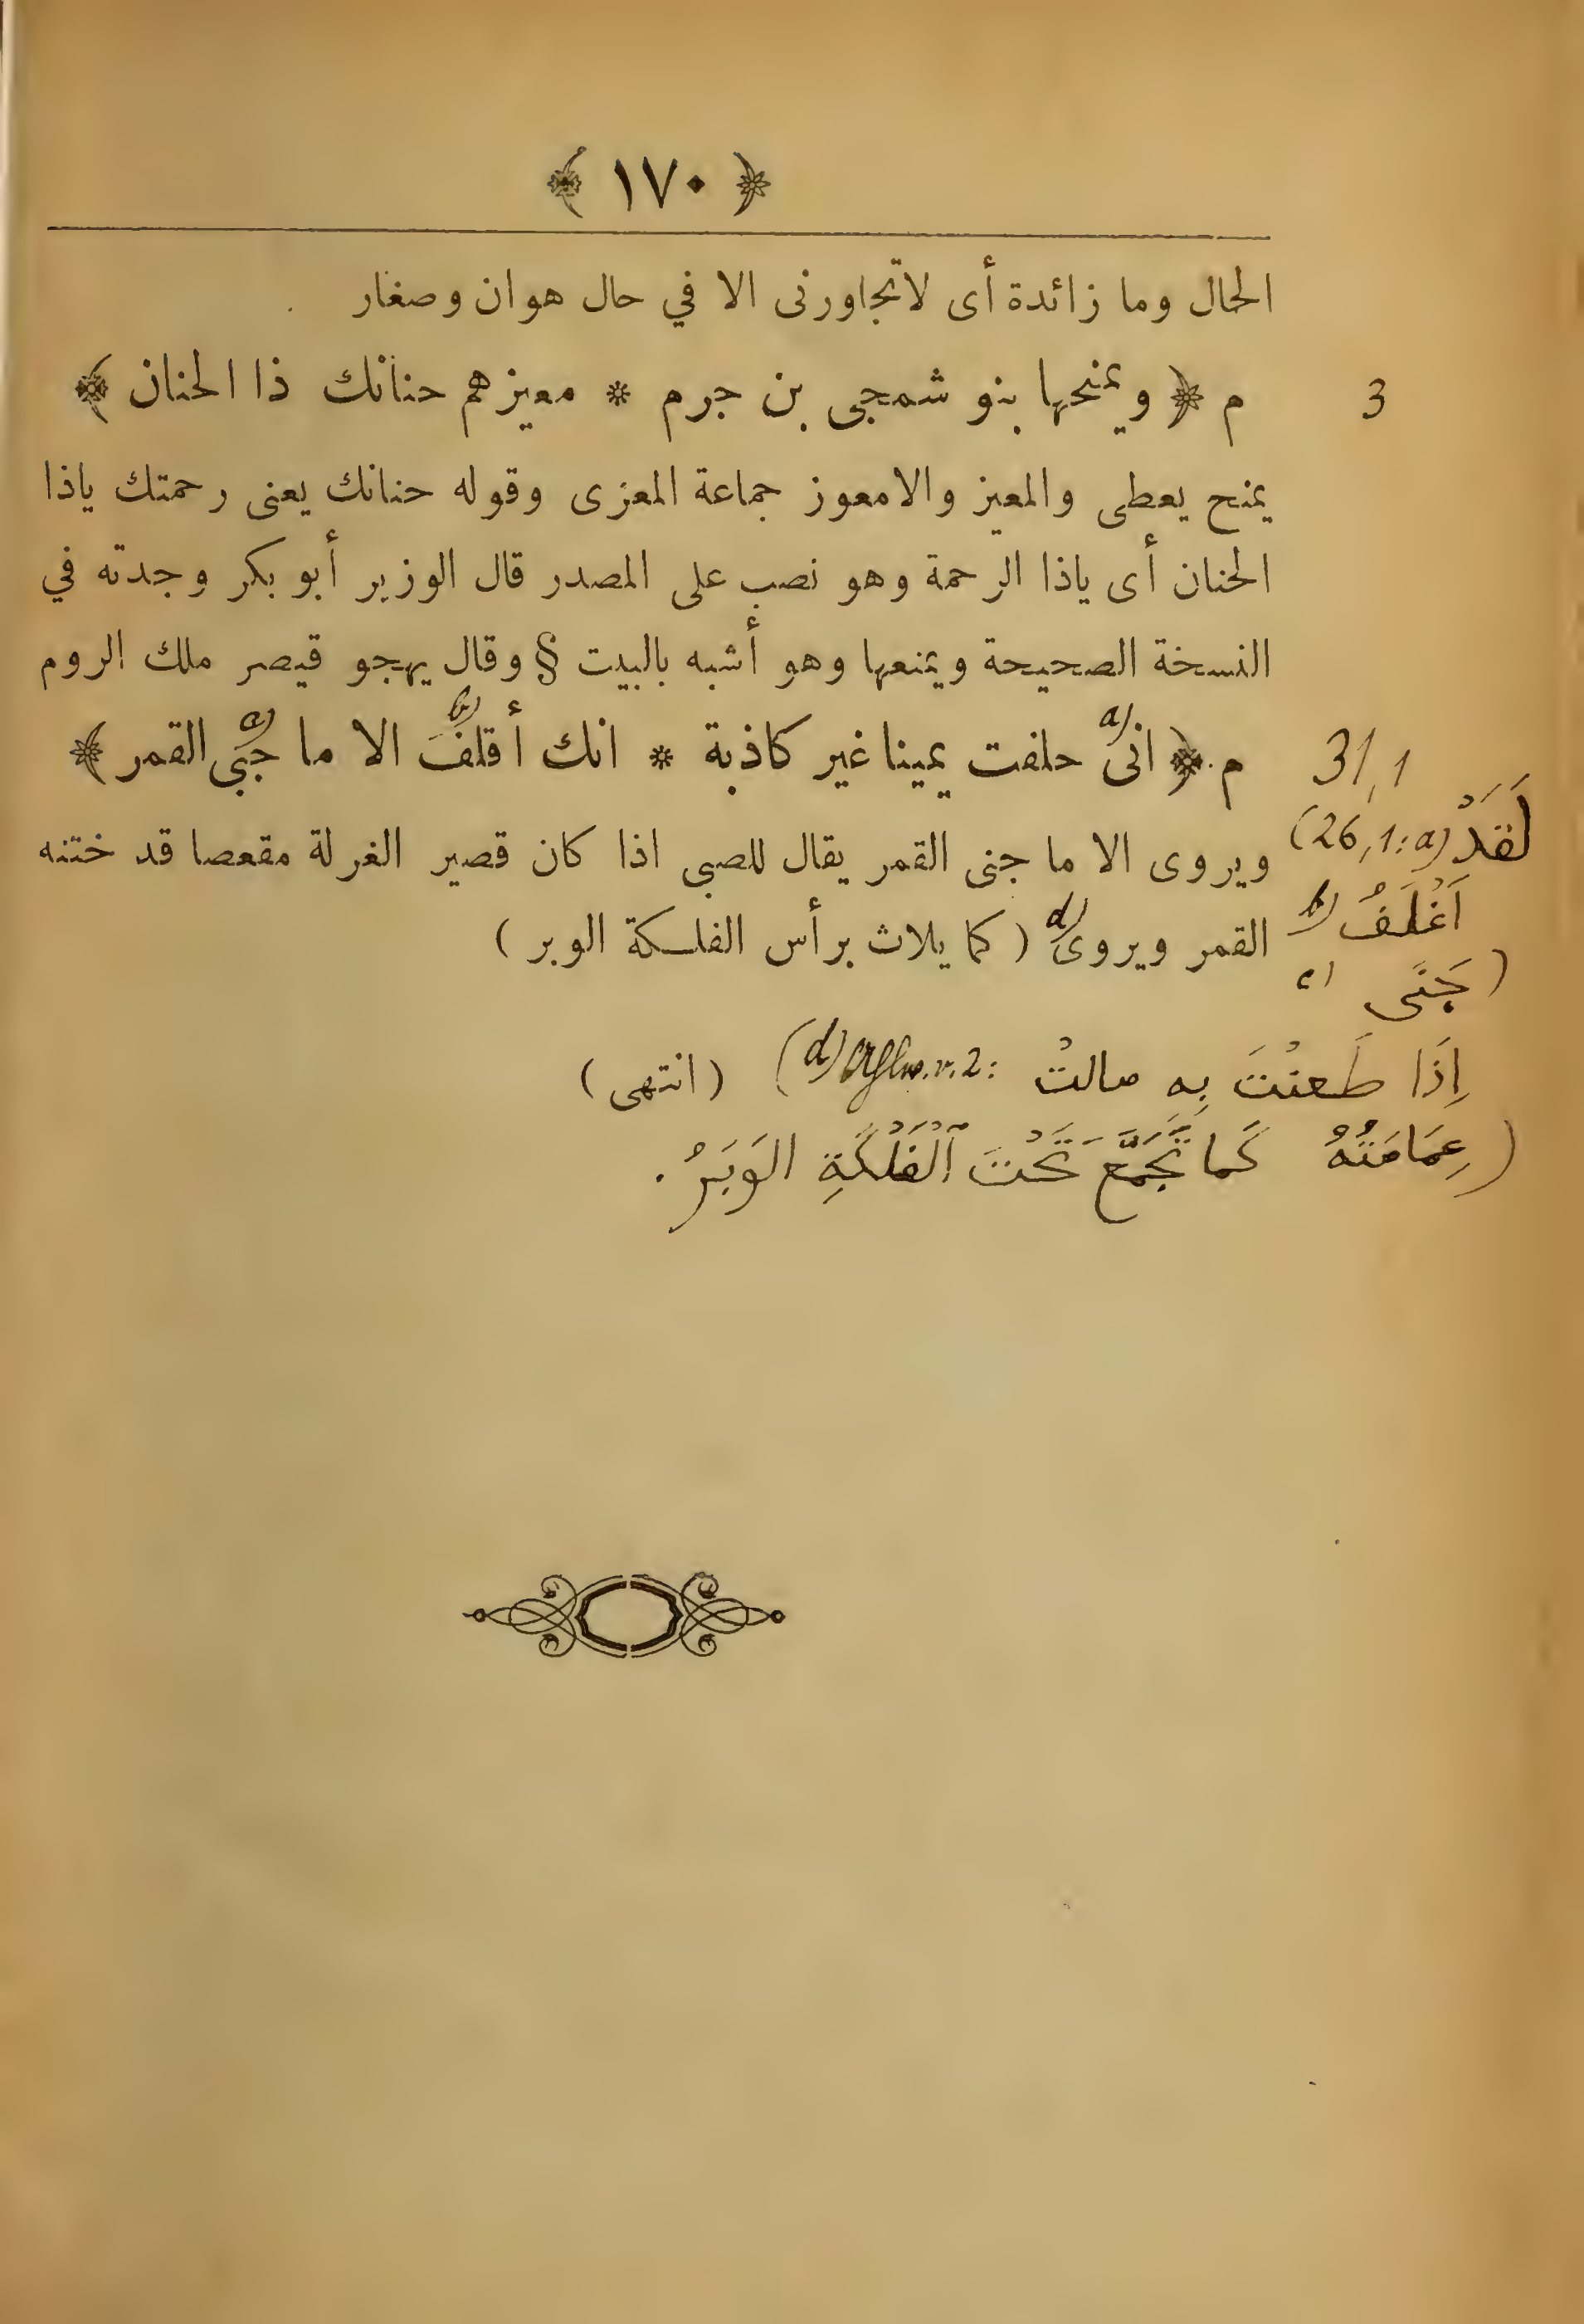 ﴿ ١٧٠ ﴾
الحال وما زائدة أى لاتجاورنى الا في حال هوان وصغار
3 م ﴿ ويمنحها بنو شمجى بن جرم * معيزهم حنانك ذا الحنان ﴾
يمنح يعطى والمعيز والامعوز جماعة المعزى وقوله حنانك يعنى رحمتك ياذا
الحنان أى ياذا الرحمة وهو نصب على المصدر قال الوزير أبو بكر وجدته في
النسخة الصحيحة ويمنعها وهو أشبه بالبيت § وقال يهجو قيصر ملك الروم
31,1 م ﴿ انى a) حلفت يمينا غير كاذبة * انك أقلفَ b) الا ما جبى c) القمر ﴾
لَقَدْ (26,1: a)
ويروى الا ما جنى القمر يقال للصبى اذا كان قصير الغرلة مقعصا قد ختنه
b) اَغْلَفُ
القمر ويروى d) ( كما يلاث برأس الفلكة الوبر )
( جَنَى c)
اِذَا طَعنْتَ بِه مالتْ (d) Ahlw. v. 2: ( انتهى )
( عِمَامَتُهُ كَما تَجَمَّعَ تَحْتَ ٱلْفَلْكَةِ الوَبَرُ .